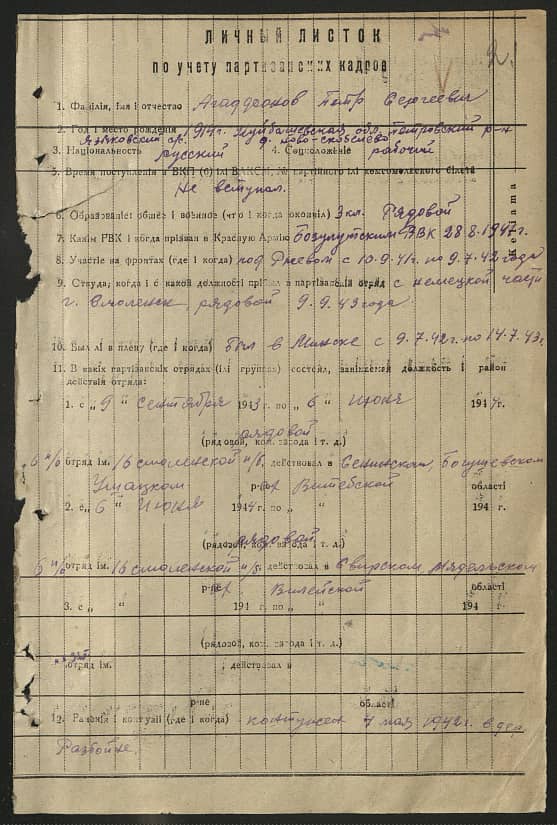 2.
ЛИЧНЫЙ ЛИСТОК
по учету партизанских кадров
1. Фамілія, імя і отчество Агаддеонов Петр Сергеевич
2. Год і место рождения 914г. Куйбышевская обл. Петровский р-н
Языковский с/с. д. Ново-
3. Национальность русский 4. Соцположение рабочий
5. Время поступления в ВКП (б) ілі ВЛКСМ, № партійного ілі комсомольского білета
Не вступал.
6. Образованіе: общее і военное (что і когда окончіл) 3 кл. Рядовой
7. Какім РВК і когда прізван в Красную Армію Бозулутским РВК 28 8.1947г.
8. Участіе на фронтах (где і когда) под Ржевом с 10.9.41г. по 9.7.42 года
9. Откуда, когда і с какой должності прібыл в партізанскій отряд с немецкой части
г. Смоленск, рядовой 9.9.43 года
10. Был лі в плену (где і когда) был в Минске с 9.7.42г. по 14.7.43г.
11. В какіх партізанскіх отрядах (ілі группах) состоял, занімаемая должность і район
действій отряда:
1. с „ 9 “ сентября 1943 г. по „ 6 “ июня 1944 г.
рядовой
(рядовой, ком. взвода і т. д.)
6 п/о отряд ім. 16 смоленской п/б. действовал в Сенинском, Богушевском
р-нах Витебской області
2. с „ 6 “ Июня 1944 г. по „ “ 194 г.
рядовой
(рядовой, ком. взвода і т. д.)
6 п/о отряд ім. 16 смоленской п/б. действовал в Свирском, Мядельском
р-не Вилейской області
3. с „ “ 194 г. по „ “ 194 г.
(рядовой, ком. взвода і т. д.)
отряд ім. действовал в
р-не області
12. Раненія і контузіі (где і когда) контужен 7 мая 1942г. в дер.
Разбойне.